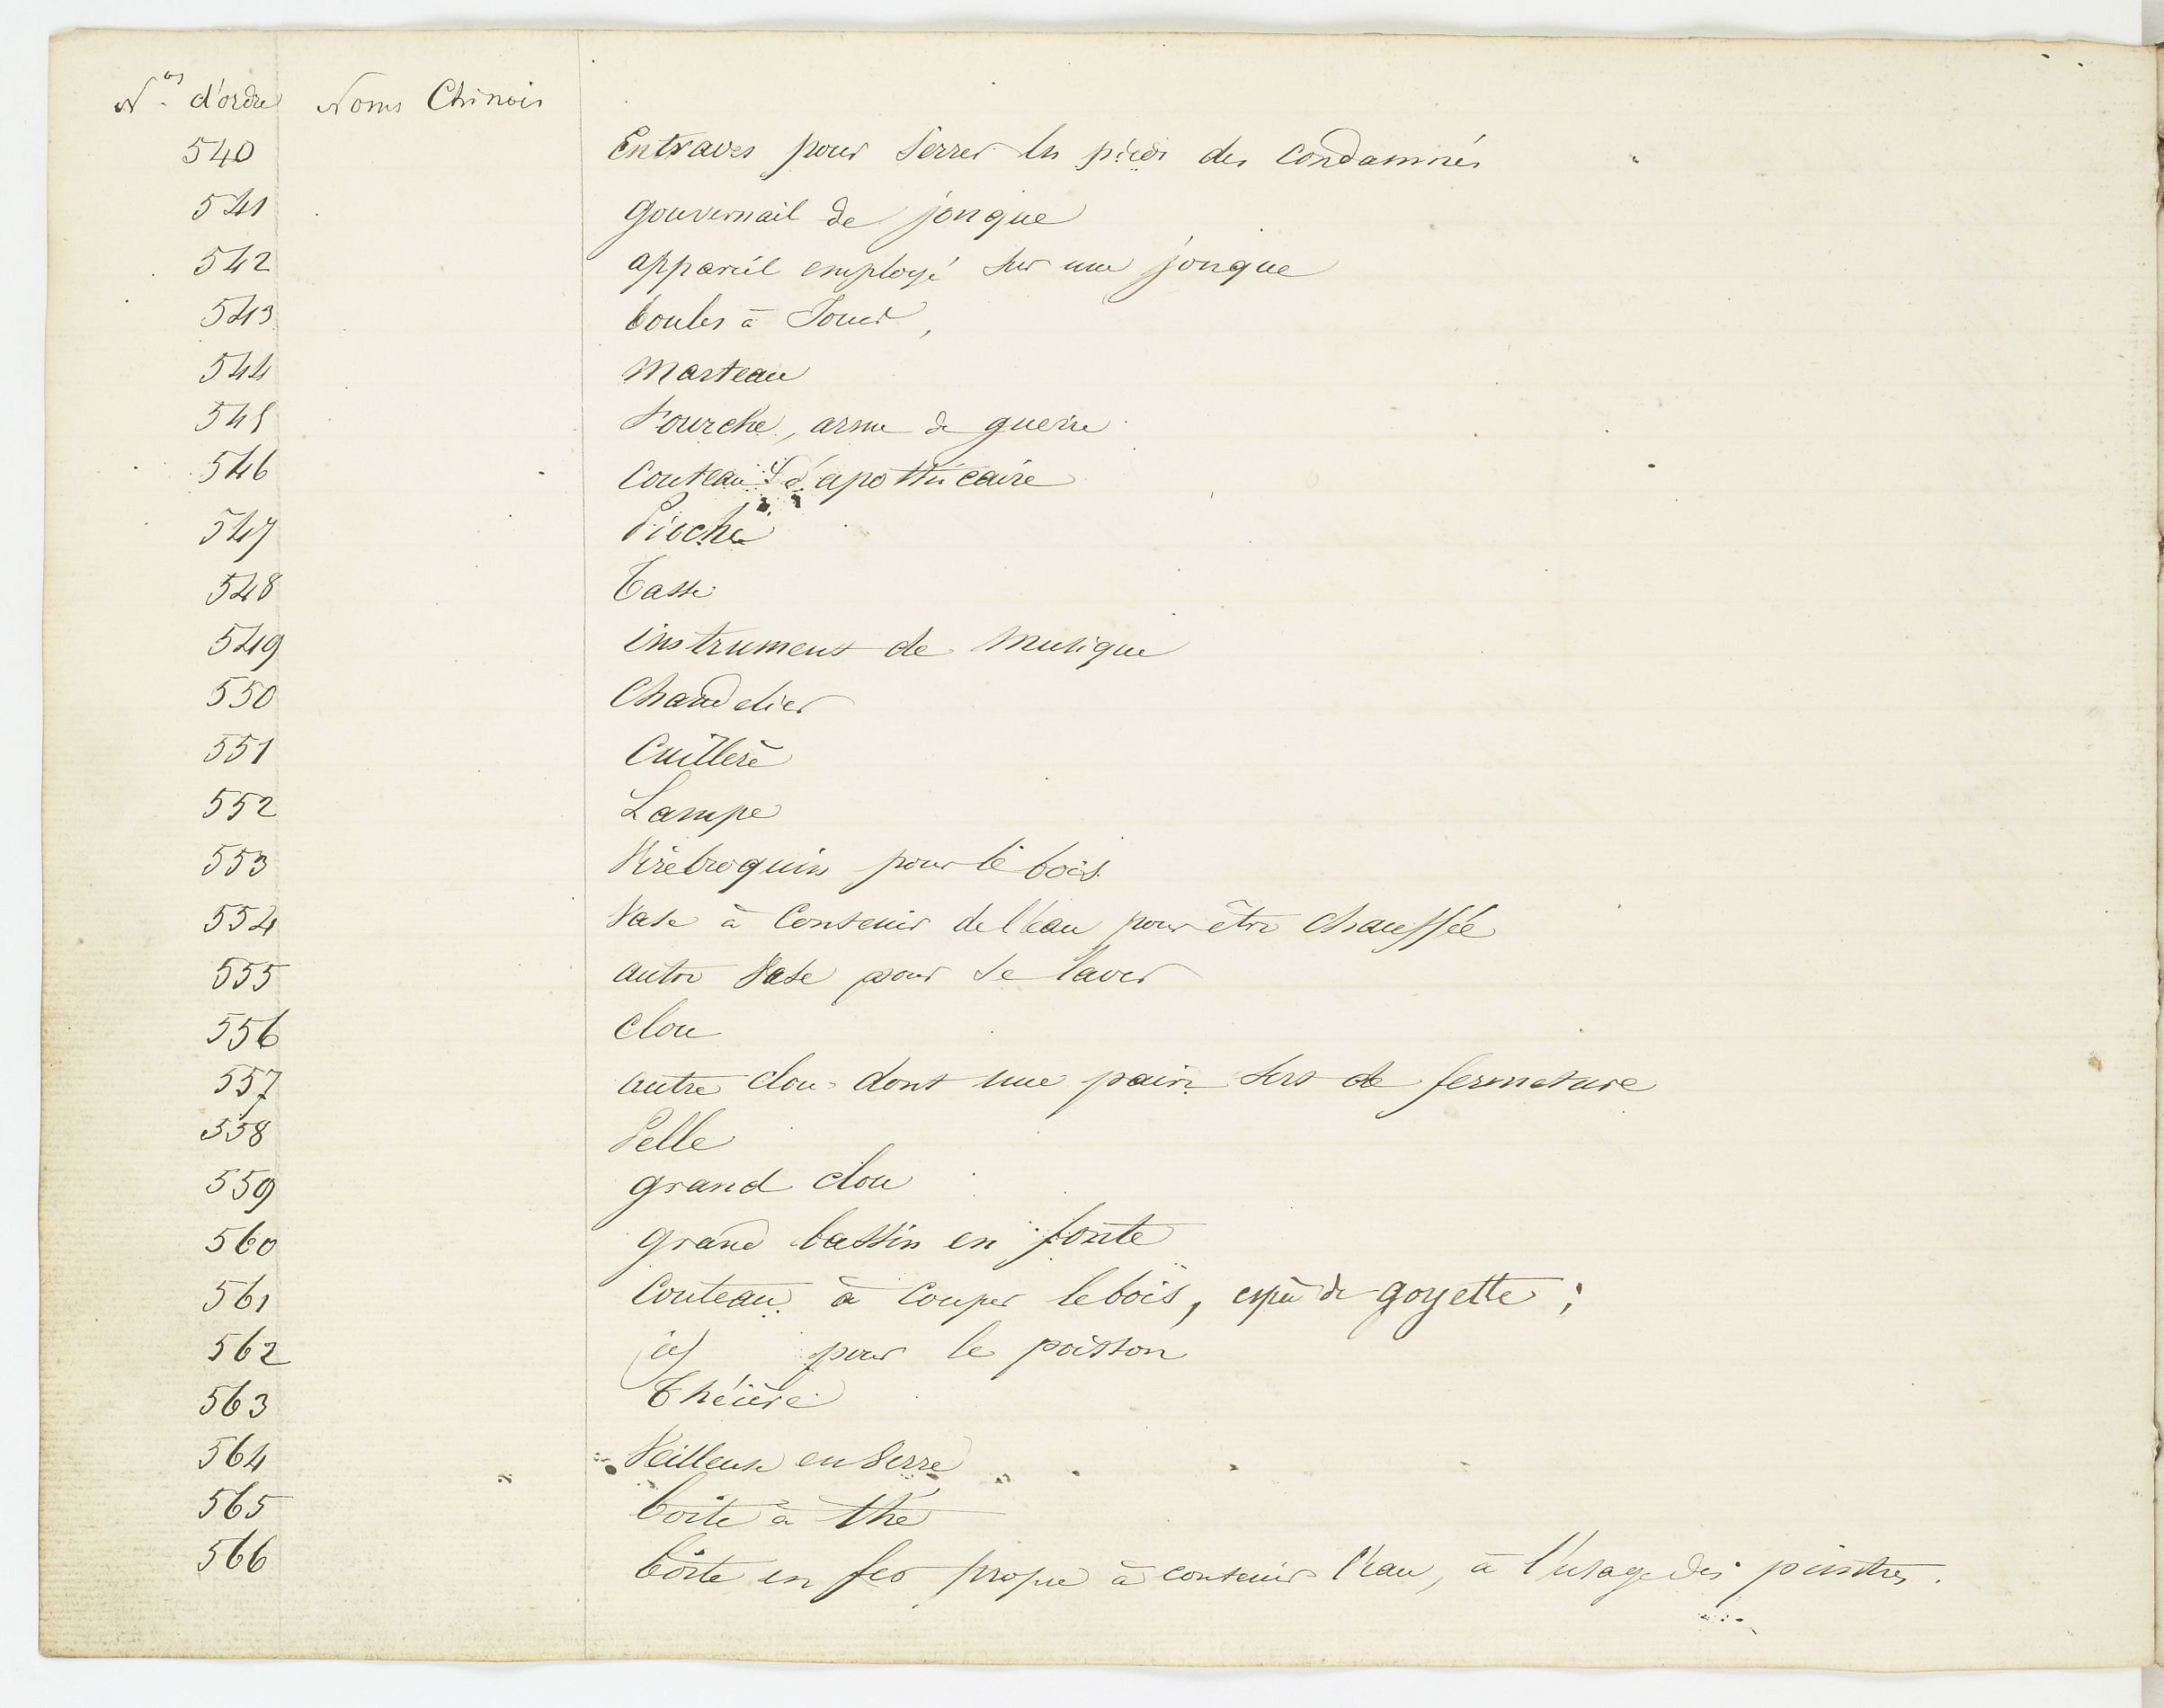 Nos d'ordre Noms Chinois
540 Entraves pour serrer les pieds des condamnés
541 gouvernail de jonque
542 appareil employé sur une jonque
543 boules à Jouer,
544 Marteau
545 Fourche, arme de guerre
546 Couteau d'apothicaire
547 Pioche
548 Tasse
549 instrument de Musique
550 Chandelier
551 Cuillère
552 Lampe
553 Virebroquin pour le bois
554 Vase à Contenir de l'eau pour être chauffée
555 autre Vase pour se laver
556 clou
557 autre clou dont une paire sert de fermeture
558 Pelle
559 grand clou
560 grand bassin en fonte
561 Couteau à couper le bois, espèce de goyette ;
562 id pour le poisson
563 Théière
564 Veilleuse en Verre
565 boite à thé
566 boite en fer propre à contenir l'eau, à l'usage des peintres.